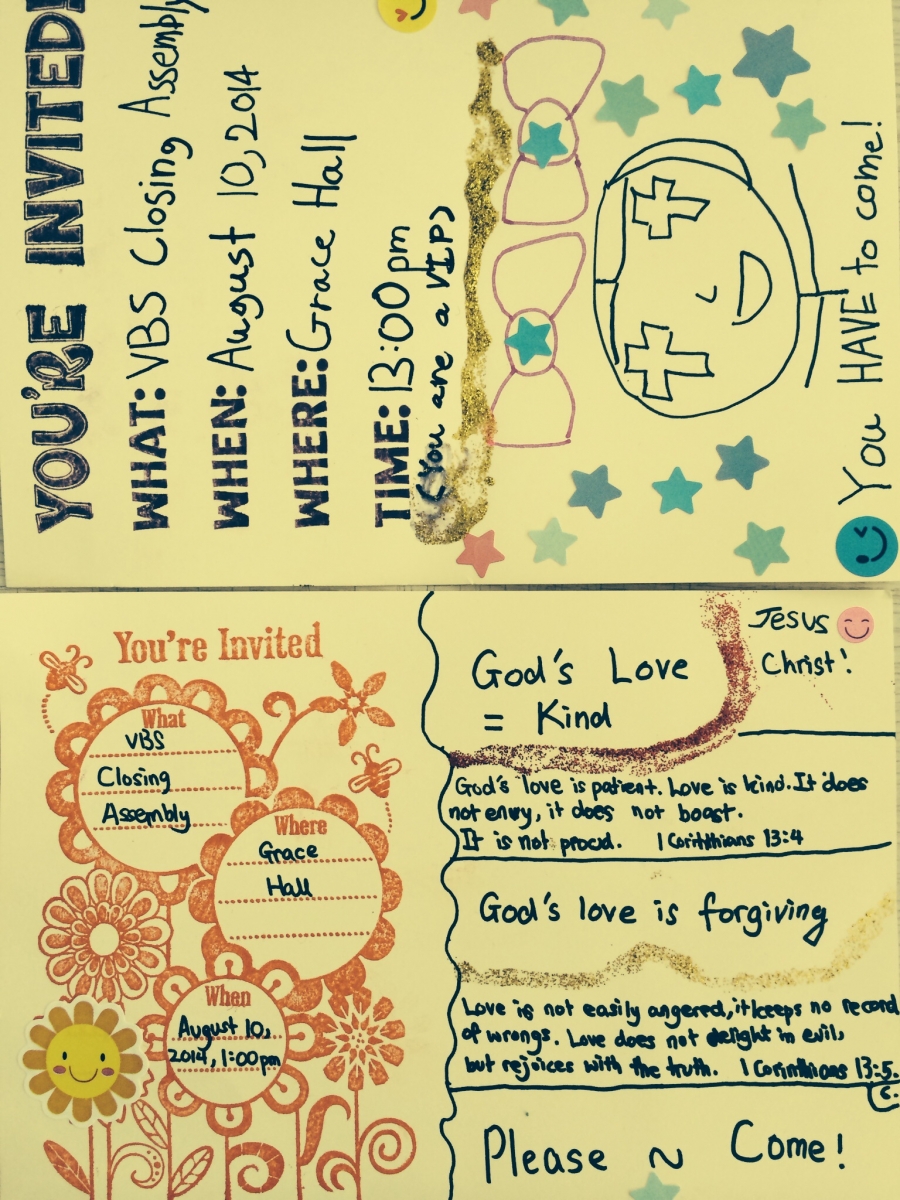 YOU'RE INVITED
WHAT: VBS Closing Assembly
WHEN: August 10, 2014
WHERE: Grace Hall
TIME: 13:00pm
(You are a VIP)
You HAVE to come!
You're Invited
What
VBS
Closing
Assembly
Where
Grace
Hall
When
August 10,
2014, 1:00pm
God's Love
= Kind
Jesus
Christ!
God's love is patient. Love is kind. It does
not envy, it does not boast.
It is not proud. 1 Corinthians 13:4
God's love is forgiving
Love is not easily angered, it keeps no record
of wrongs. Love does not delight in evil,
but rejoices with the truth. 1 Corinthians 13:5.
6.
Please ~ Come!